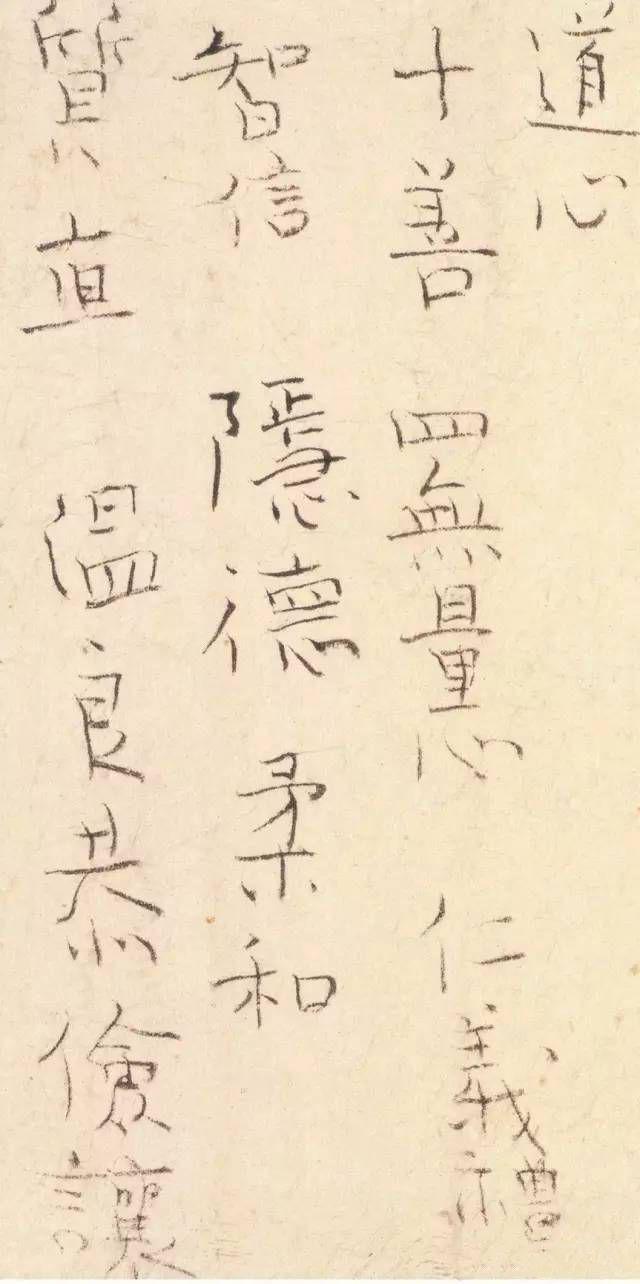 道心
十善 四無量心 仁義禮
智信 隱德 柔和
質直 溫良恭儉讓